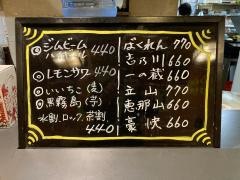 ◎ジムビームハイボール 440
◎レモンサワー 440
◎いいちこ(麦)
◎黒霧島(芋)
水割、ロック、茶割 440
ばくれん 770
吉乃川 660
一の蔵 660
立山 770
恵那山 660
豪快 660